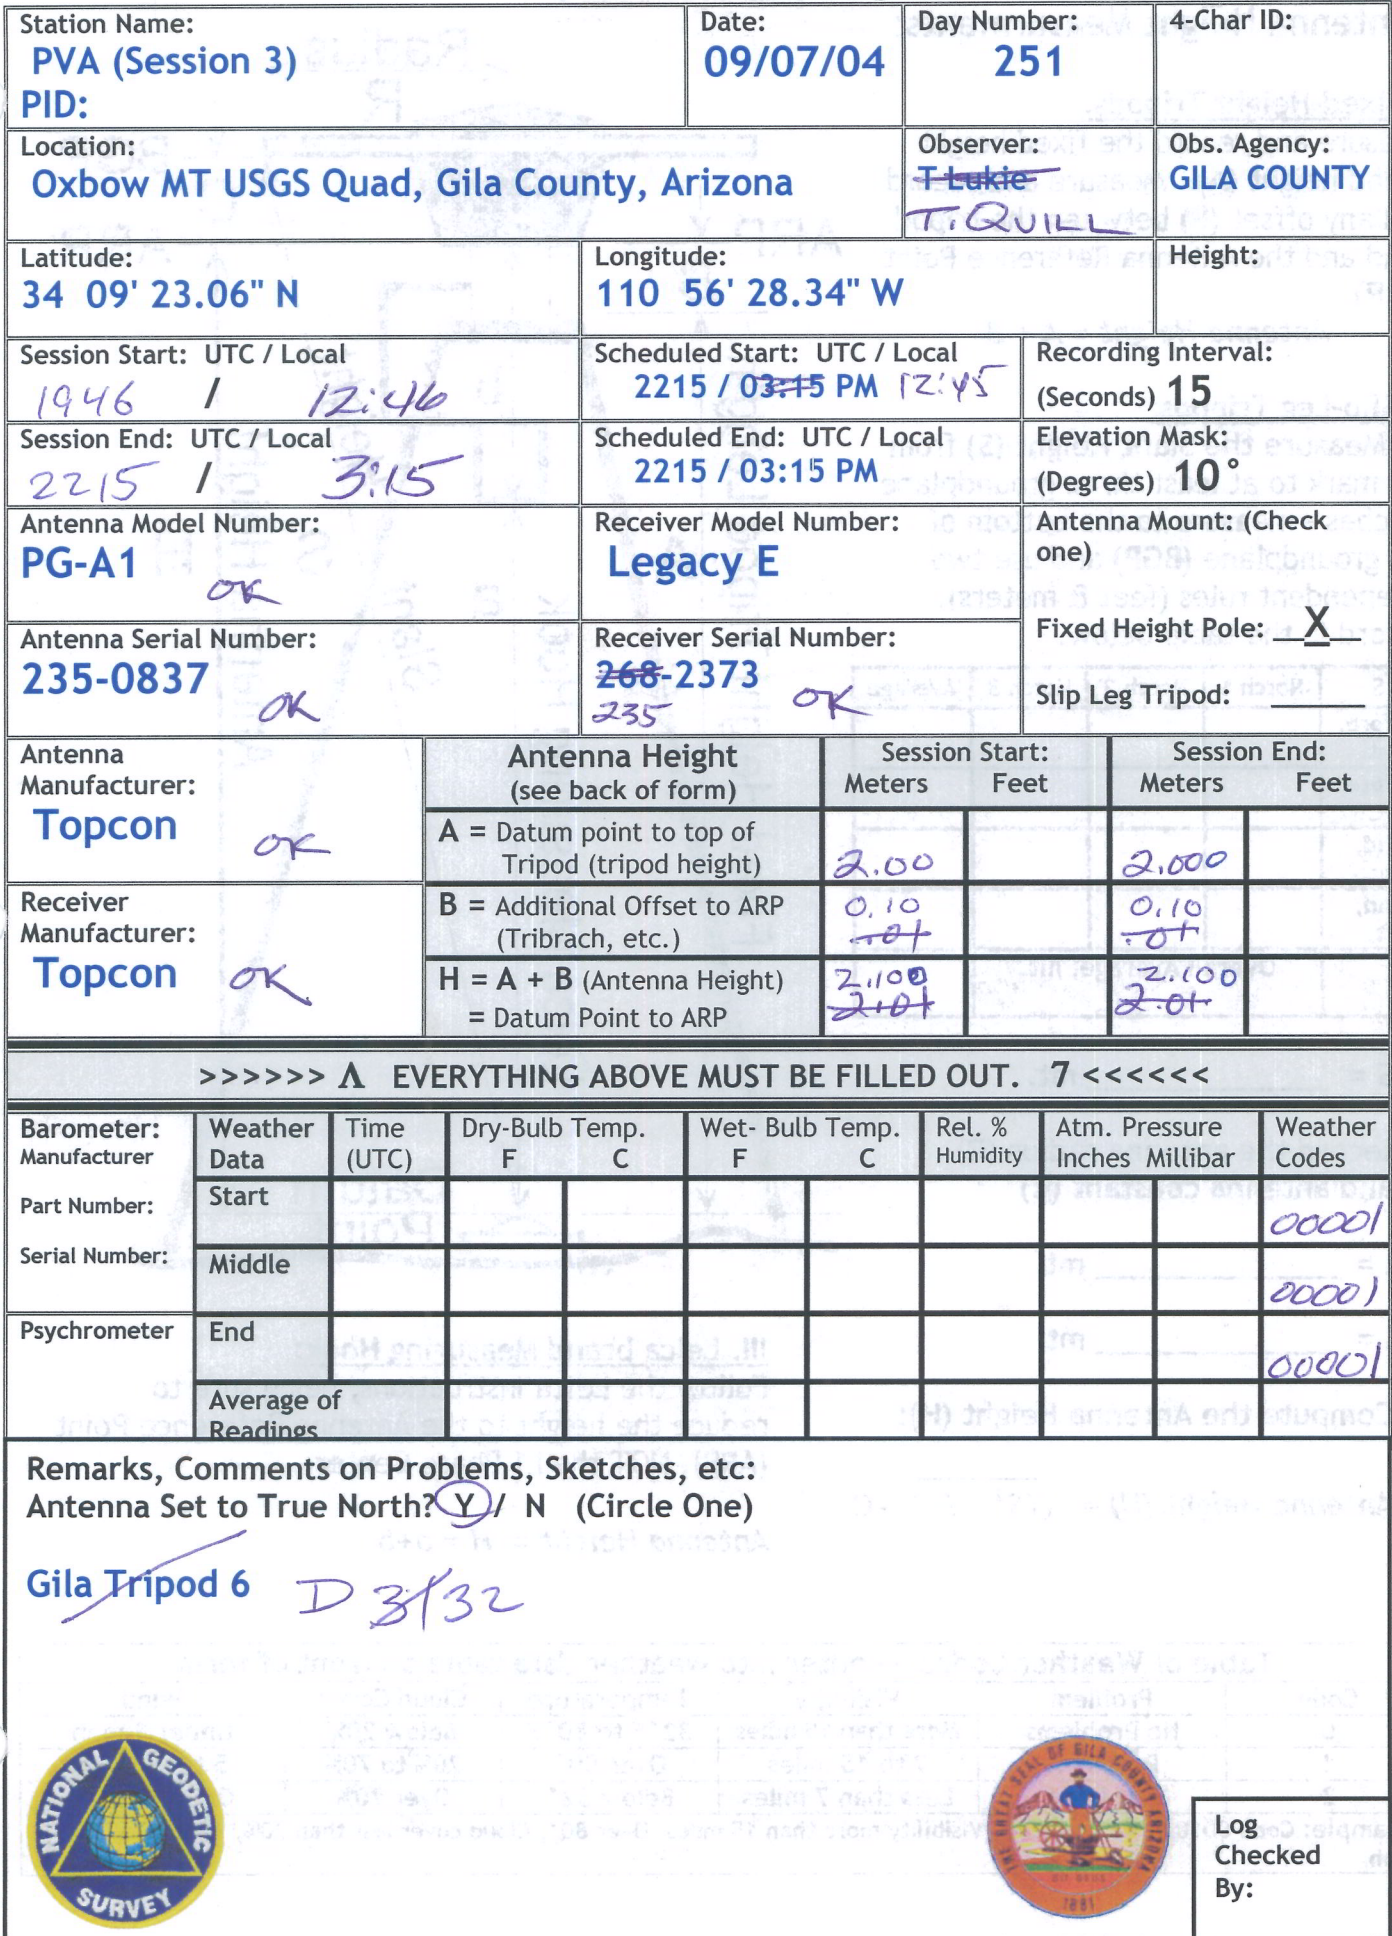 Station Name:
PVA (Session 3)
PID:
Date:
09/07/04
Day Number:
251
4-Char ID:
Location:
Oxbow MT USGS Quad, Gila County, Arizona
Observer:
T Lukie
T. QUILL
Obs. Agency:
GILA COUNTY
Latitude:
34 09' 23.06" N
Longitude:
110 56' 28.34" W
Height:
Session Start: UTC / Local
1946 / 12:46
Scheduled Start: UTC / Local
2215 / 03:15 PM 12:45
Recording Interval:
(Seconds) 15
Session End: UTC / Local
2215 / 3:15
Scheduled End: UTC / Local
2215 / 03:15 PM
Elevation Mask:
(Degrees) 10°
Antenna Model Number:
PG-A1
OK
Receiver Model Number:
Legacy E
Antenna Mount: (Check
one)
Fixed Height Pole: X
Slip Leg Tripod:
Antenna Serial Number:
235-0837
OK
Receiver Serial Number:
268-2373
235 OK
Antenna
Manufacturer:
Topcon
OK
Receiver
Manufacturer:
Topcon OK
Antenna Height
(see back of form)
Session Start:
Meters Feet
Session End:
Meters Feet
A = Datum point to top of
Tripod (tripod height)
2.00 2.000
B = Additional Offset to ARP
(Tribrach, etc.)
0.10 0.10
.01 .01
H = A + B (Antenna Height)
= Datum Point to ARP
2.100 2.100
2.01 2.01
>>>>>> Λ EVERYTHING ABOVE MUST BE FILLED OUT. 7 <<<<<<
Barometer:
Manufacturer
Part Number:
Serial Number:
Psychrometer
Weather
Data
Time
(UTC)
Dry-Bulb Temp.
F C
Wet- Bulb Temp.
F C
Rel. %
Humidity
Atm. Pressure
Inches Millibar
Weather
Codes
Start
00001
Middle
00001
End
00001
Average of
Readings
Remarks, Comments on Problems, Sketches, etc:
Antenna Set to True North? Y / N (Circle One)
Gila Tripod 6
NATIONAL GEODETIC SURVEY
THE GREAT SEAL OF GILA COUNTY ARIZONA
1881
Log
Checked
By: